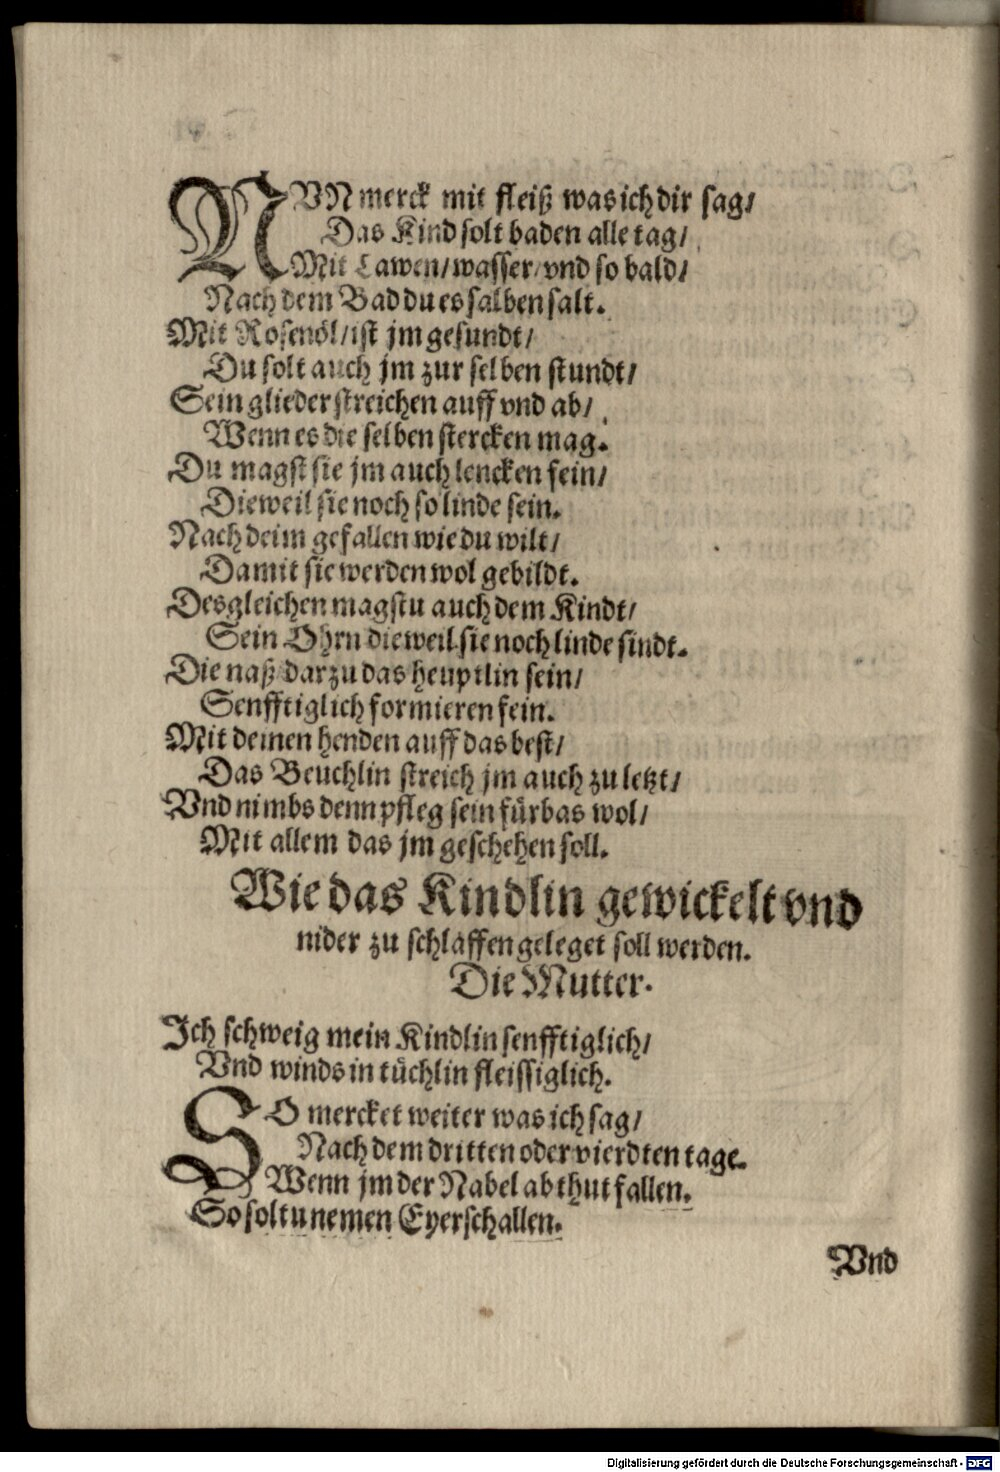 NVN merck mit fleiß was ich dir sag/
Das Kind solt baden alle tag/
Mit Lawen/wasser/vnd so bald/
Nach dem Bad du es salben salt.
Mit Rosenöl/ist jm gesundt/
Du solt auch jm zur selben stundt/
Sein glieder streichen auff vnd ab/
Wenn es die selben stercken mag.
Du magst sie jm auch lencken fein/
Dieweil sie noch so linde sein.
Nach deim gefallen wie du wilt/
Damit sie werden wol gebildt.
Desgleichen magstu auch dem Kindt/
Sein Ohrn dieweil sie noch linde sindt.
Die naß/darzu das heuptlin sein/
Senfftiglich formieren fein.
Mit deinen henden auff das best/
Das Beuchlin streich jm auch zu letzt/
Vnd nimbs denn pfleg sein fürbas wol/
Mit allem das jm geschehen soll.
Wie das Kindlin gewickelt vnd
nider zu schlaffen geleget soll werden.
Die Mutter.
Ich schweig mein Kindlin senfftiglich/
Vnd winds in tüchlin fleissiglich.
SO mercket weiter was ich sag/
Nach dem dritten oder vierdten tage.
Wenn jm der Nabel ab thut fallen.
So soltu nemen Eyerschallen.
Vnd
Digitalisierung gefördert durch die Deutsche Forschungsgemeinschaft - DFG